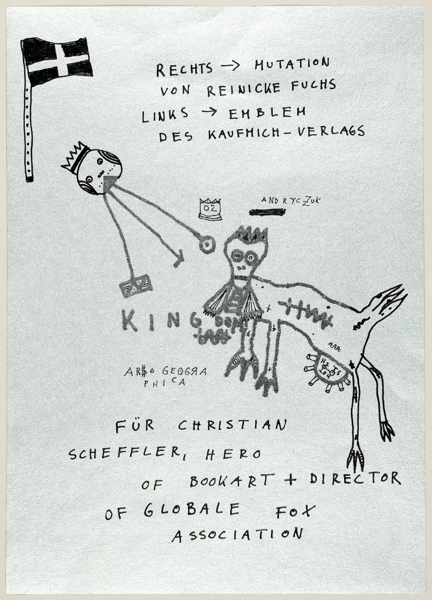 RECHTS → MUTATION
VON REINICKE FUCHS
LINKS → EMBLEM
DES KAUFMICH-VERLAGS
OZ
ANDRYCZUK
KINGDOM
GEOGRA
PHICA
FÜR CHRISTIAN
SCHEFFLER, HERO
OF BOOKART + DIRECTOR
OF GLOBALE FOX
ASSOCIATION